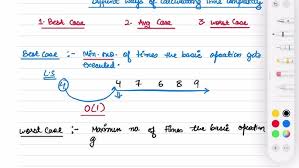 Different ways of calculating Time complexity
1. Best Case 2. Avg Case 3. Worst Case
Best Case :- Min. no. of times the basic operation gets
executed.
L.S
4 4 7 6 8 9
O(1)
Worst Case :- Maximum no. of times the basic operation
g